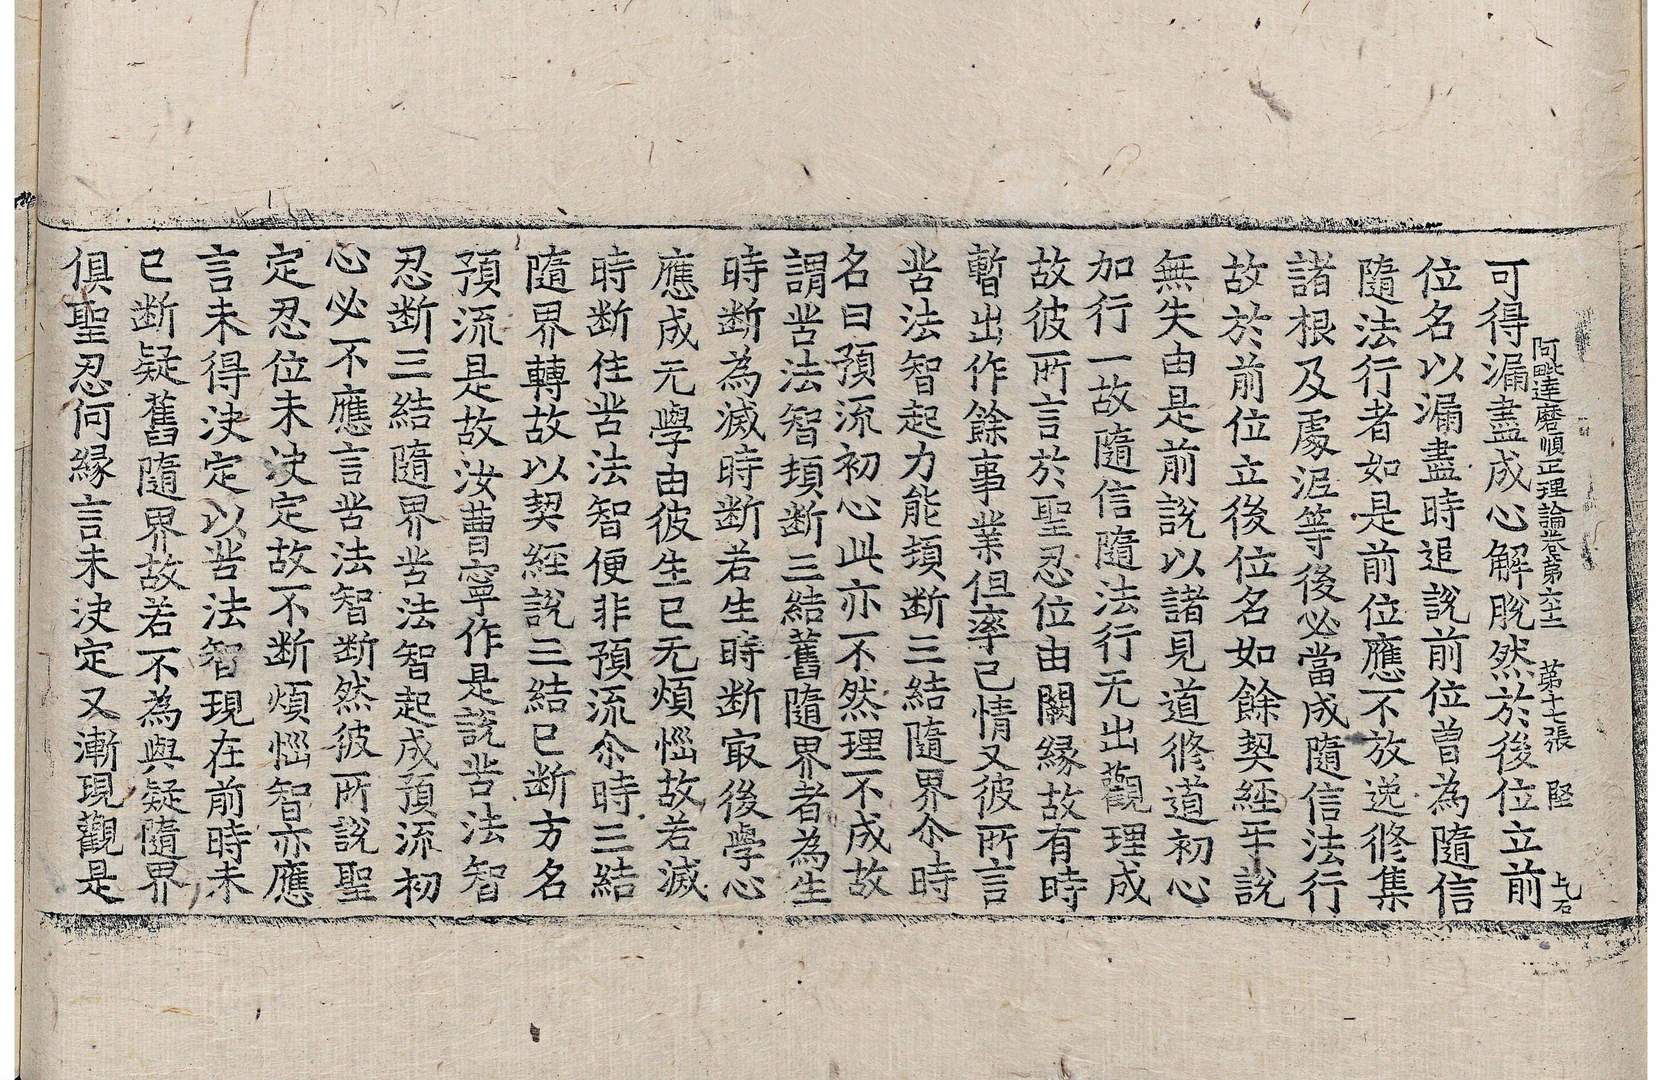 阿毗達磨順正理論卷第六十二 第十七張 堅
可得漏盡成心解脫然於後位立前
位名以漏盡時追說前位曾為隨信
隨法行者如是前位應不放逸修集
諸根及處涅等後必當成隨信法行
故於前位立後位名如餘契經平說
無失由是前說以諸見道修道初心
加行一故隨信隨法行无出觀理成
故彼所言於聖忍位由闕緣故有時
暫出作餘事業但率己情又彼所言
苦法智起力能頓斷三結隨界尒時
名曰預流初心此亦不然理不成故
謂苦法智頓斷三結舊隨界者為生
時斷為滅時斷若生時斷㝡後學心
應成无學由彼生已无煩惱故若滅
時斷住苦法智便非預流尒時三結
隨界轉故以契經說三結已斷方名
預流是故汝曹寧作是說苦法智
忍斷三結隨界苦法智起成預流初
心必不應言苦法智斷然彼所說聖
定忍位未決定故不斷煩惱智亦應
言未得決定以苦法智現在前時未
已斷疑舊隨界故若不為與疑隨界
俱聖忍何緣言未決定又漸現觀是